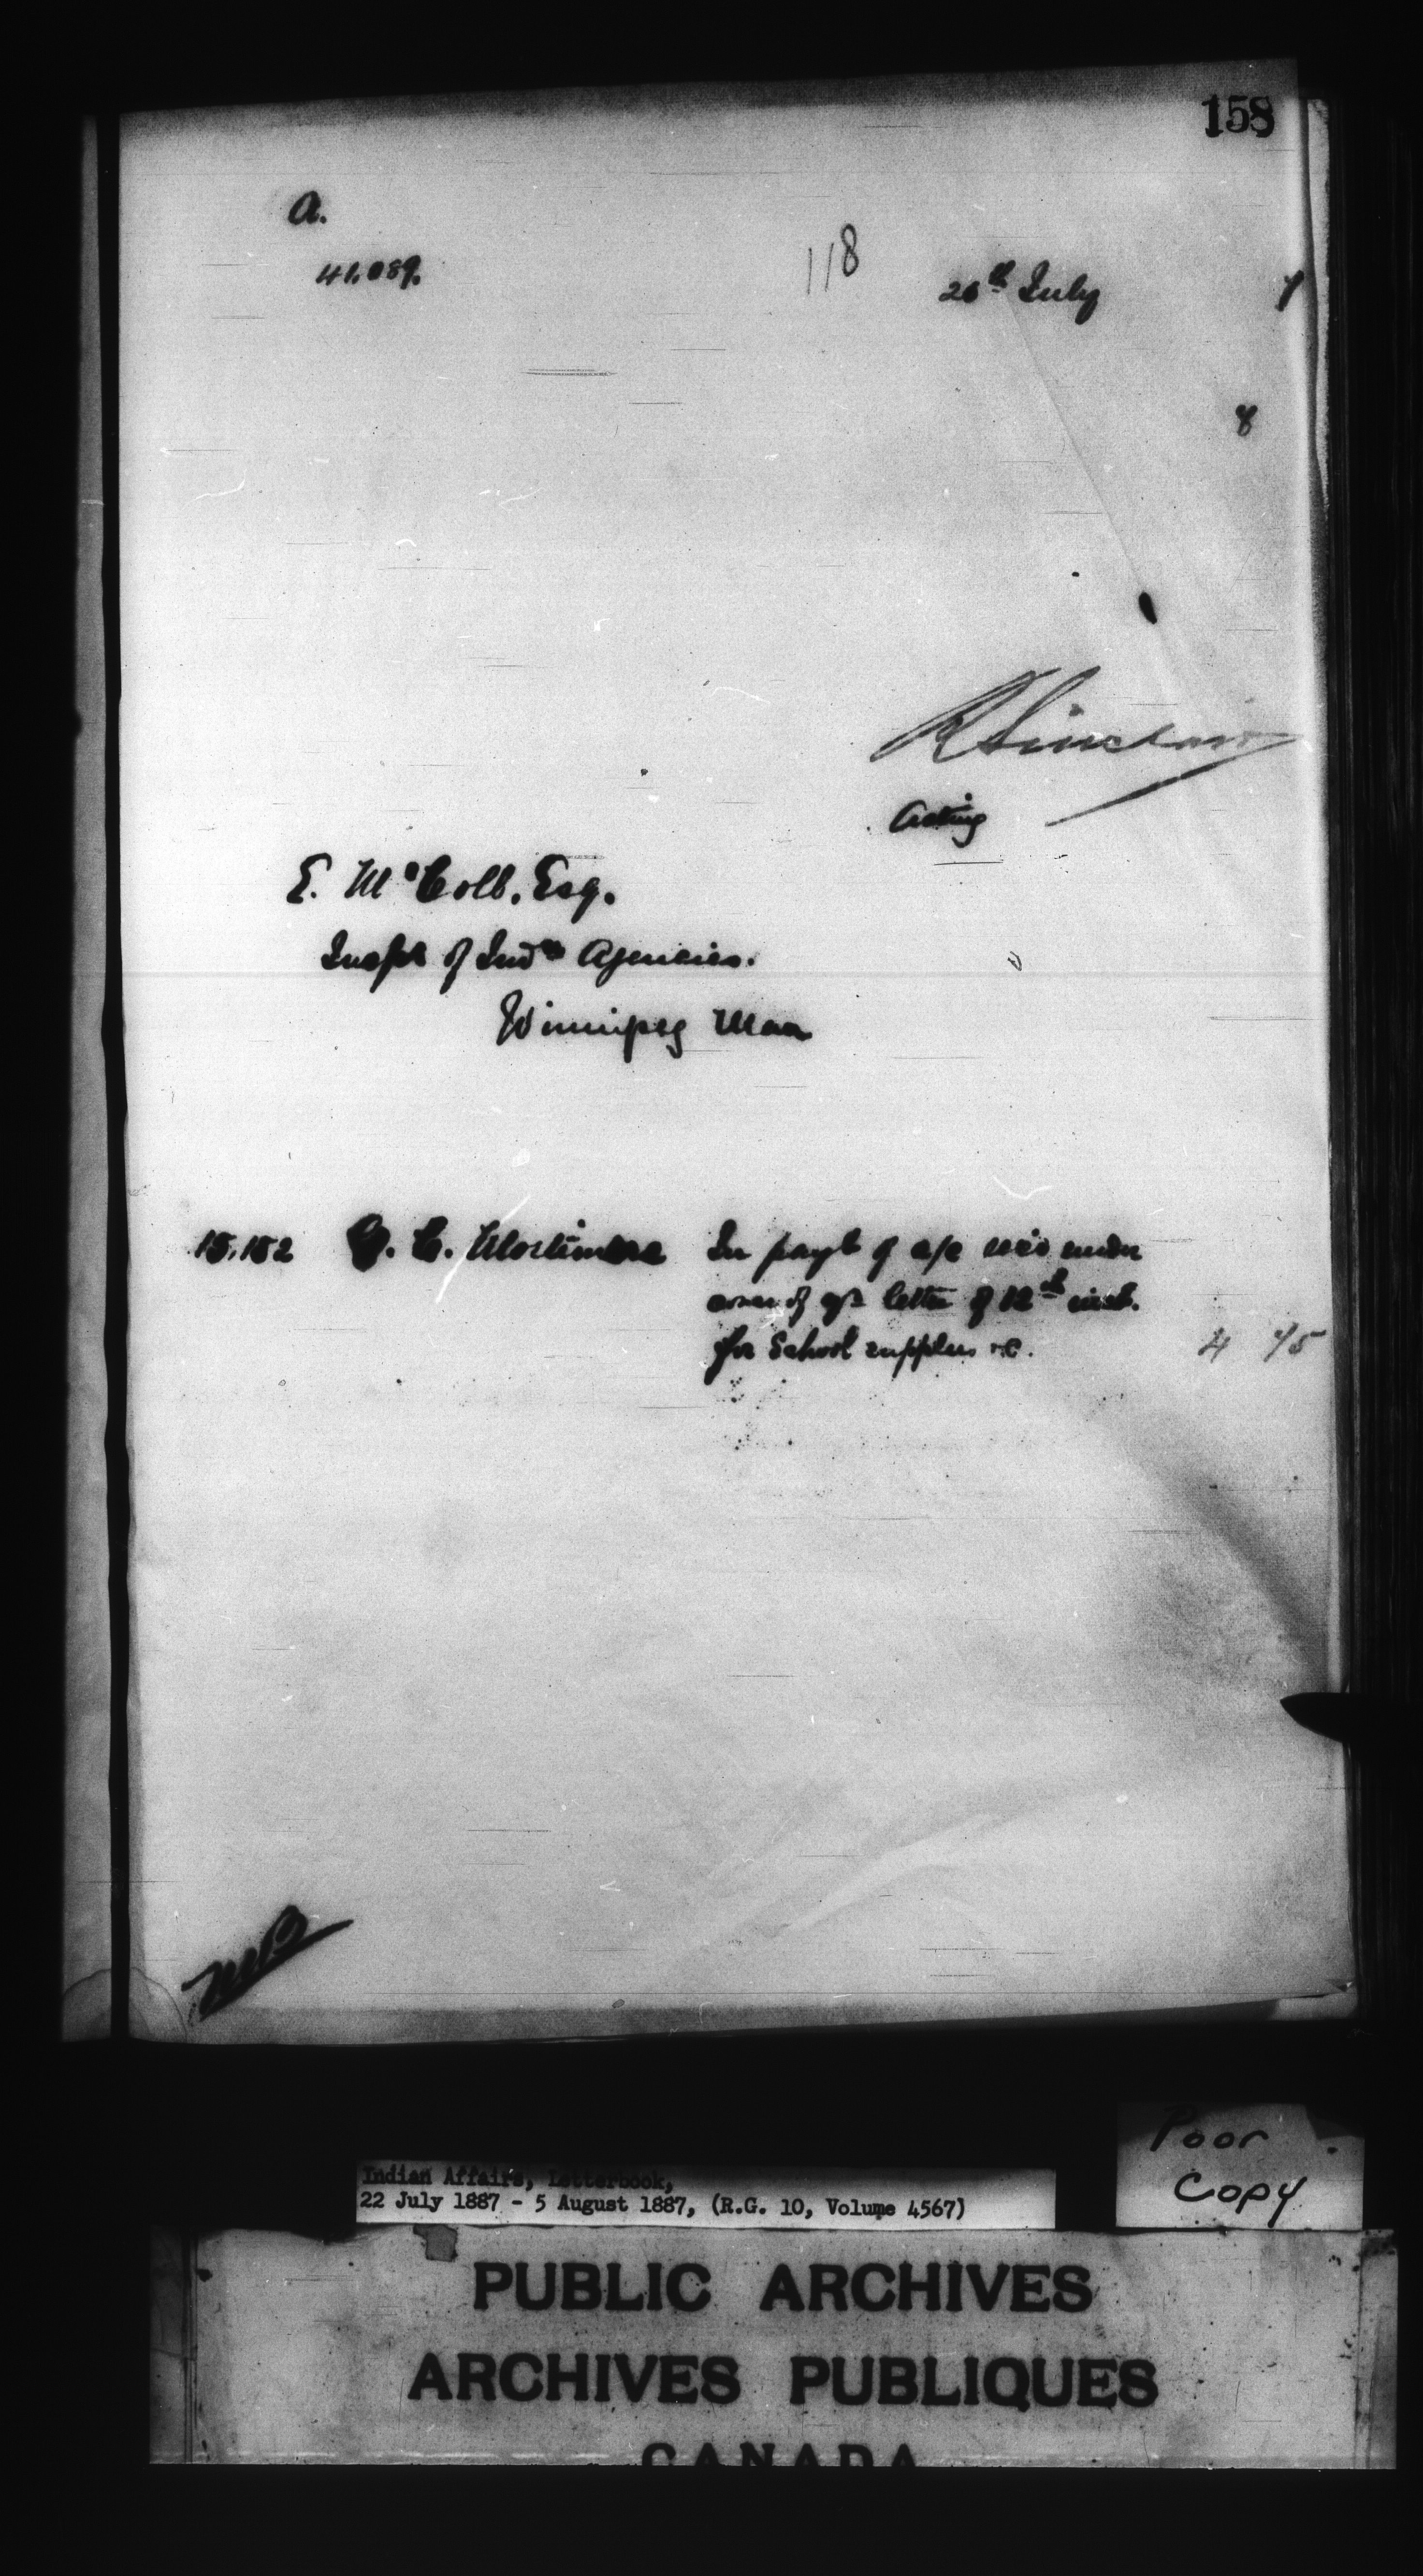 158
A.
41.089.
118
26th July 7
8
R Sinclair
Acting
E. McColl, Esq.
Inspt of Indn Agencies.
Winnipeg Man
15.152 G. C. Mortimore In payt of a/c recd under
cover of yr letter of 12th inst.
for School supplies &c. 4 75
Indian Affairs, Letterbook,
22 July 1887 - 5 August 1887, (R.G. 10, Volume 4567)
Poor
Copy
PUBLIC ARCHIVES
ARCHIVES PUBLIQUES
CANADA